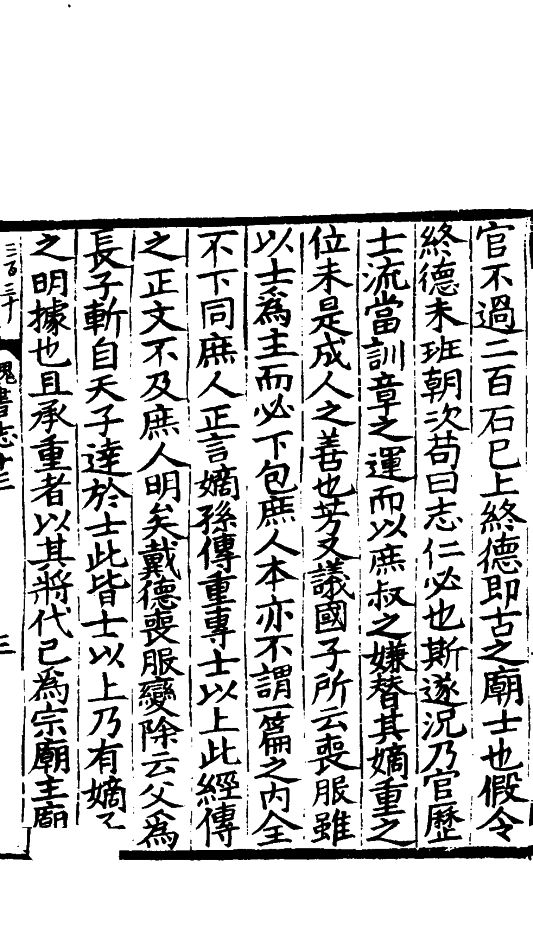 官不過二百石已上終德即古之廟士也假令
終德未班朝次苟曰志仁必也斯遂況乃官歷
士流當訓章之運而以庶叔之嫌替其嫡重之
位未是成人之善也芳又議國子所云喪服雖
以士為主而必下包庶人本亦不謂一篇之內全
不下同庶人正言嫡孫傳重專士以上此經傳
之正文不及庶人明矣戴德喪服變除云父為
長子斬自天子達於士此皆士以上乃有嫡子
之明據也且承重者以其將代已為宗廟主廟
三百三十
魏書志十三
三